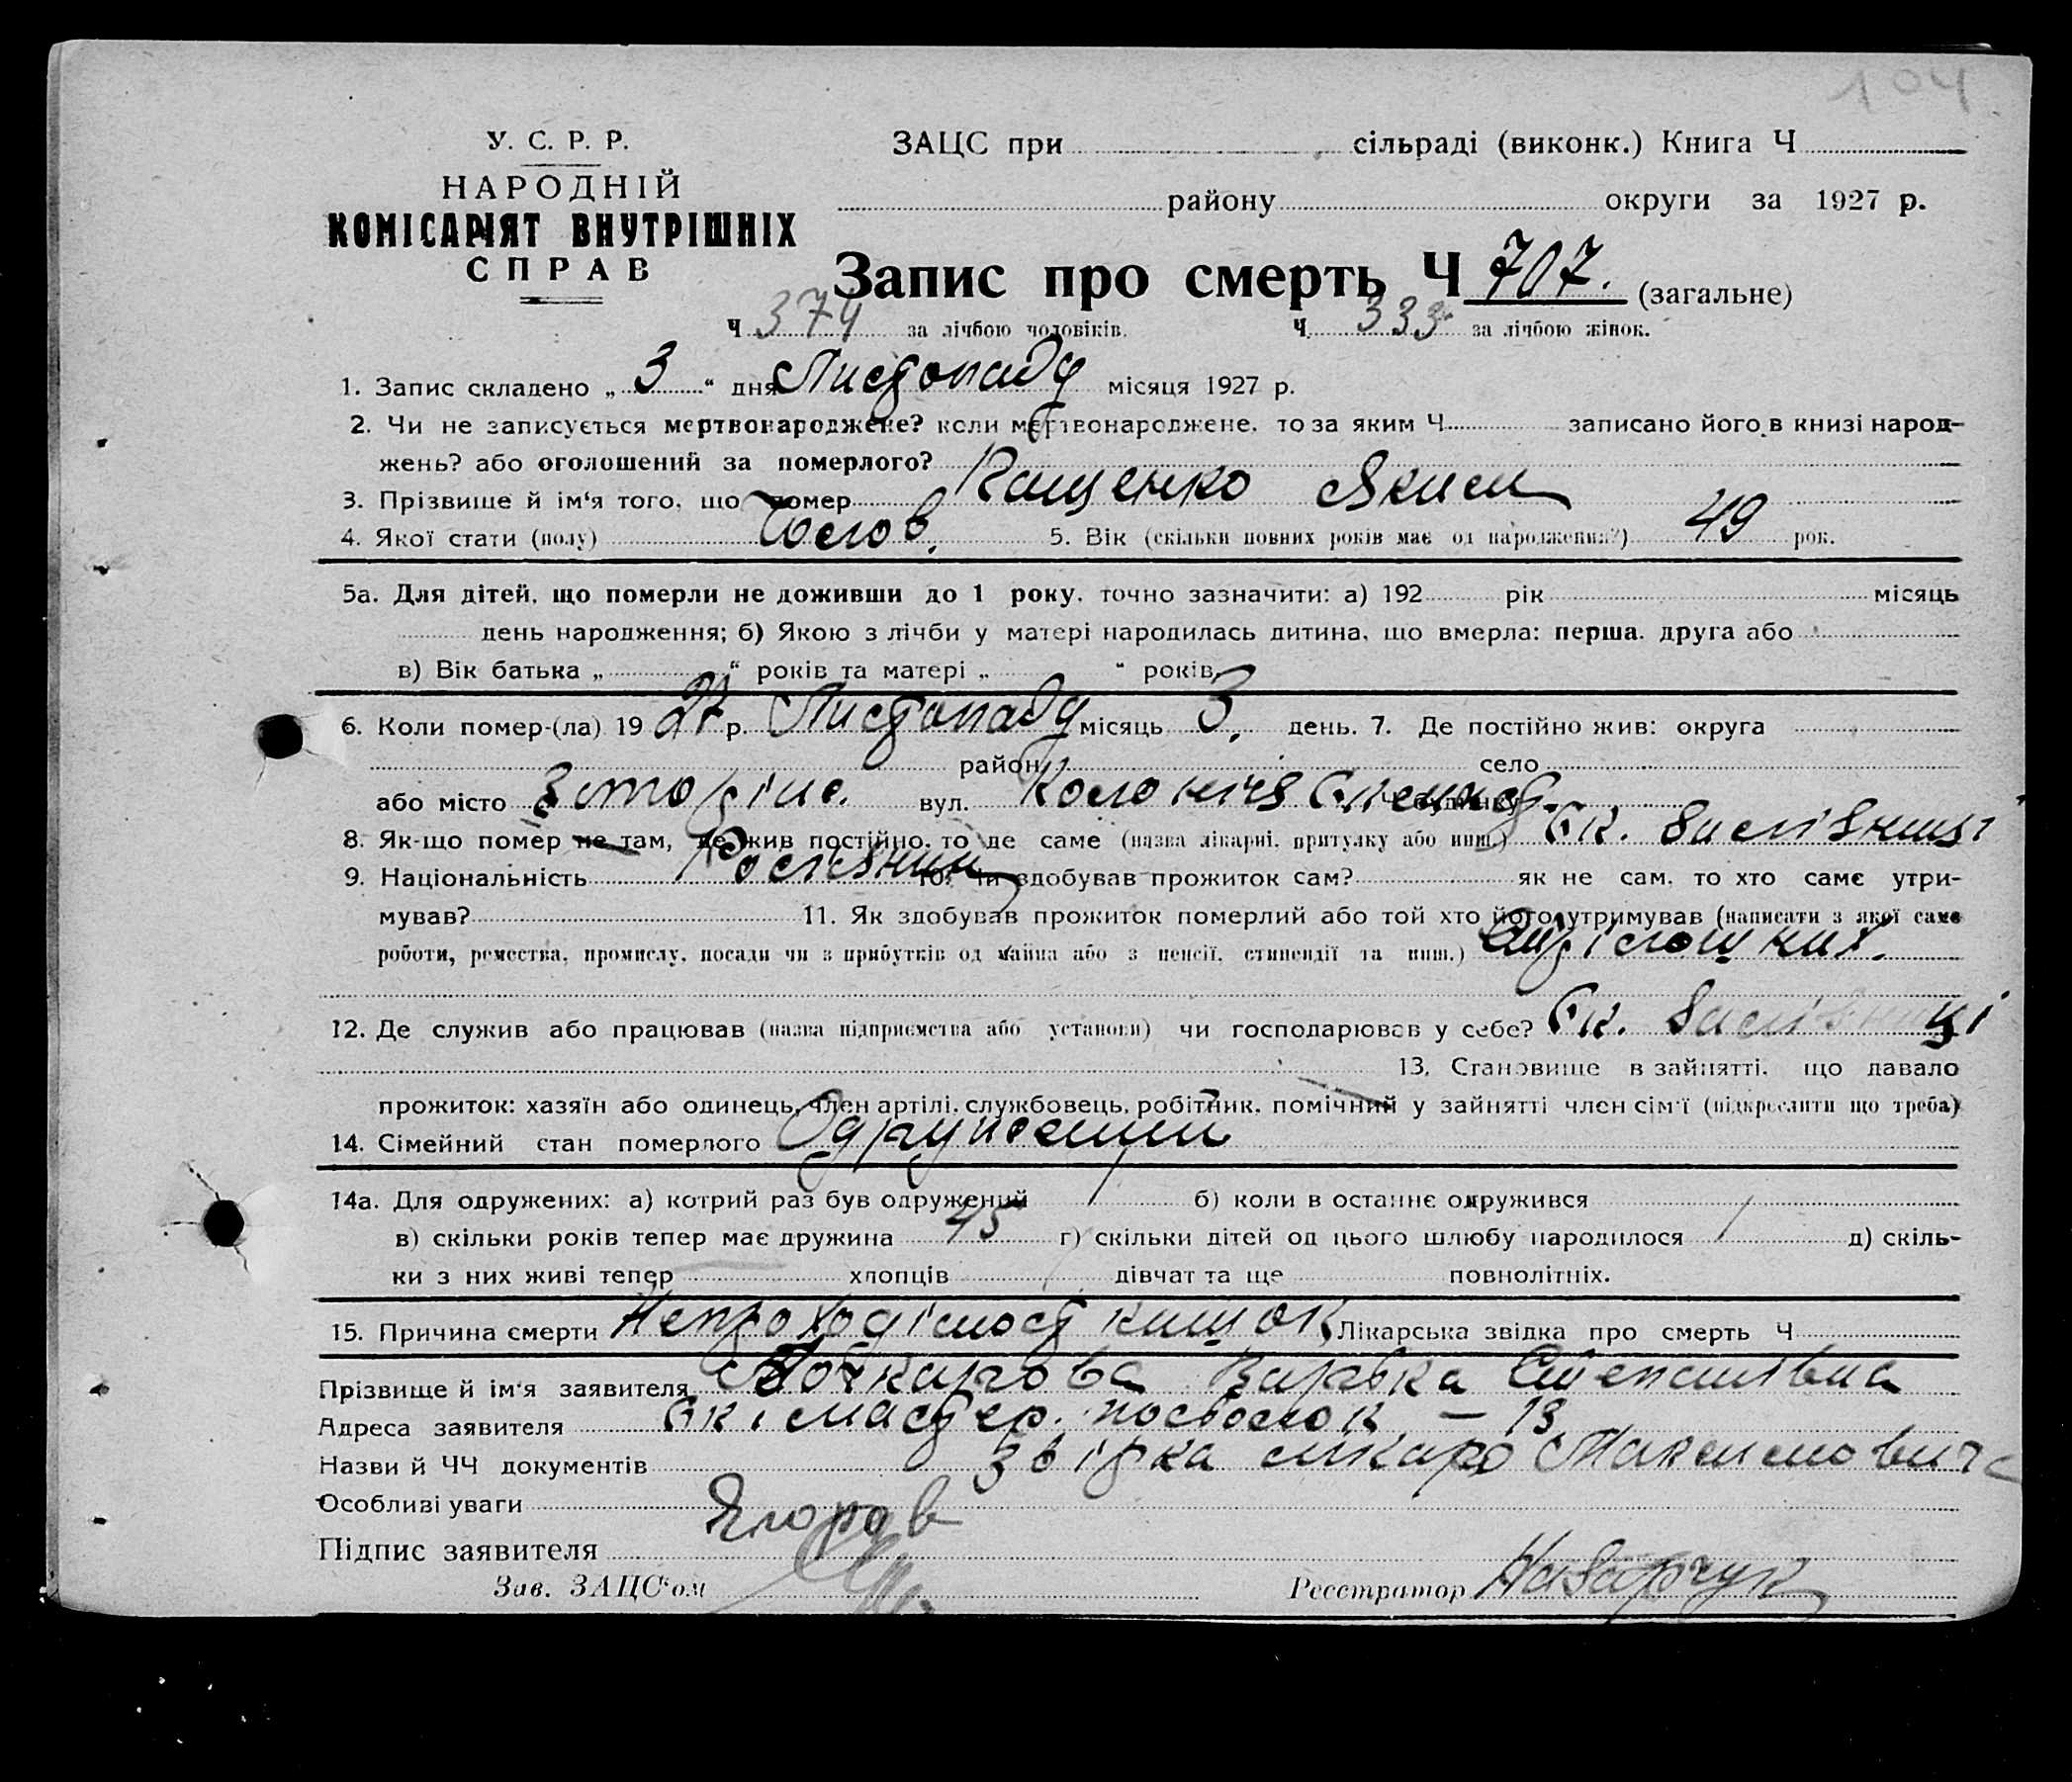 104
У. С. Р. Р.
НАРОДНІЙ
КОМІСАРІЯТ ВНУТРІШНІХ
СПРАВ
ЗАЦС при сільраді (виконк.) Книга Ч
району округи за 1927 р.
Запис про смерть Ч 707. (загальне)
Ч 374 за лічбою чоловіків. Ч 333 за лічбою жінок.
1. Запис складено „ 3 “ дня Листопаду місяця 1927 р.
2. Чи не записується мертвонароджене? коли мертвонароджене, то за яким Ч записано його в книзі народ-
жень? або оголошений за померлого?
3. Прізвище й ім'я того, що помер Кащенко Яким
4. Якої стати (полу) Чолов. 5. Вік (скільки повних років має од народження?) 49 рок.
5а. Для дітей, що померли не доживши до 1 року, точно зазначити: а) 192 рік місяць
день народження; б) Якою з лічби у матері народилась дитина, що вмерла: перша, друга або
в) Вік батька „ “ років та матері „ “ років
6. Коли помер-(ла) 19 27 р. Листопаду місяць 3, день. 7. Де постійно жив: округа
район село
або місто вул. Колонія будинку
8. Як-що помер не там, де жив постійно, то де саме (назва лікарні, притулку або инш.) Ст.
9. Національність 10. Чи здобував прожиток сам? як не сам, то хто саме утри-
мував? 11. Як здобував прожиток померлий або той хто його утримував (написати з якої саме
роботи, ремества, промислу, посади чи з прибутків од майна або з пенсії, стипендії та инш.)
12. Де служив або працював (назва підприємства або установи) чи господарював у себе? Ст.
13. Становище в зайнятті, що давало
прожиток: хазяїн або одинець, член артілі, службовець, робітник, помічний у зайнятті член сім'ї (підкреслити що треба)
14. Сімейний стан померлого Одружений
14а. Для одружених: а) котрий раз був одружений 1 б) коли в останнє одружився
в) скільки років тепер має дружина 45 г) скільки дітей од цього шлюбу народилося д) скіль-
ки з них живі тепер хлопців дівчат та ще повнолітніх.
15. Причина смерти Непроходімость кишок Лікарська звідка про смерть Ч
Прізвище й ім'я заявителя Варвка Степанівна
Адреса заявителя посьолок – 13
Назви й ЧЧ документів Звідка лікаря Максимовича
Особливі уваги
Підпис заявителя Єгоров
Зав. ЗАЦС'ом Реєстратор Назарчук